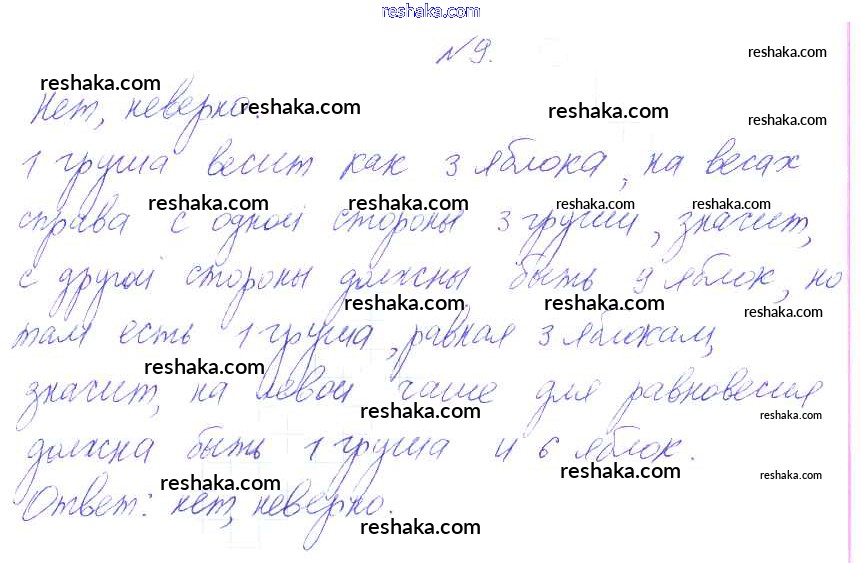 reshaka.com
№9.
reshaka.com
reshaka.com
Нет, неверно.
reshaka.com
reshaka.com
reshaka.com
1 груша весит как 3 яблока, на весах
reshaka.com
reshaka.com
reshaka.com
справа с одной стороны 3 груши, значит,
с другой стороны должны быть 9 яблок, но
reshaka.com
reshaka.com
reshaka.com
там есть 1 груша, равная 3 яблокам,
reshaka.com
значит, на левой чаше для равновесия
reshaka.com
reshaka.com
должна быть 1 груша и 6 яблок.
reshaka.com
reshaka.com
reshaka.com
Ответ: нет, неверно.
reshaka.com